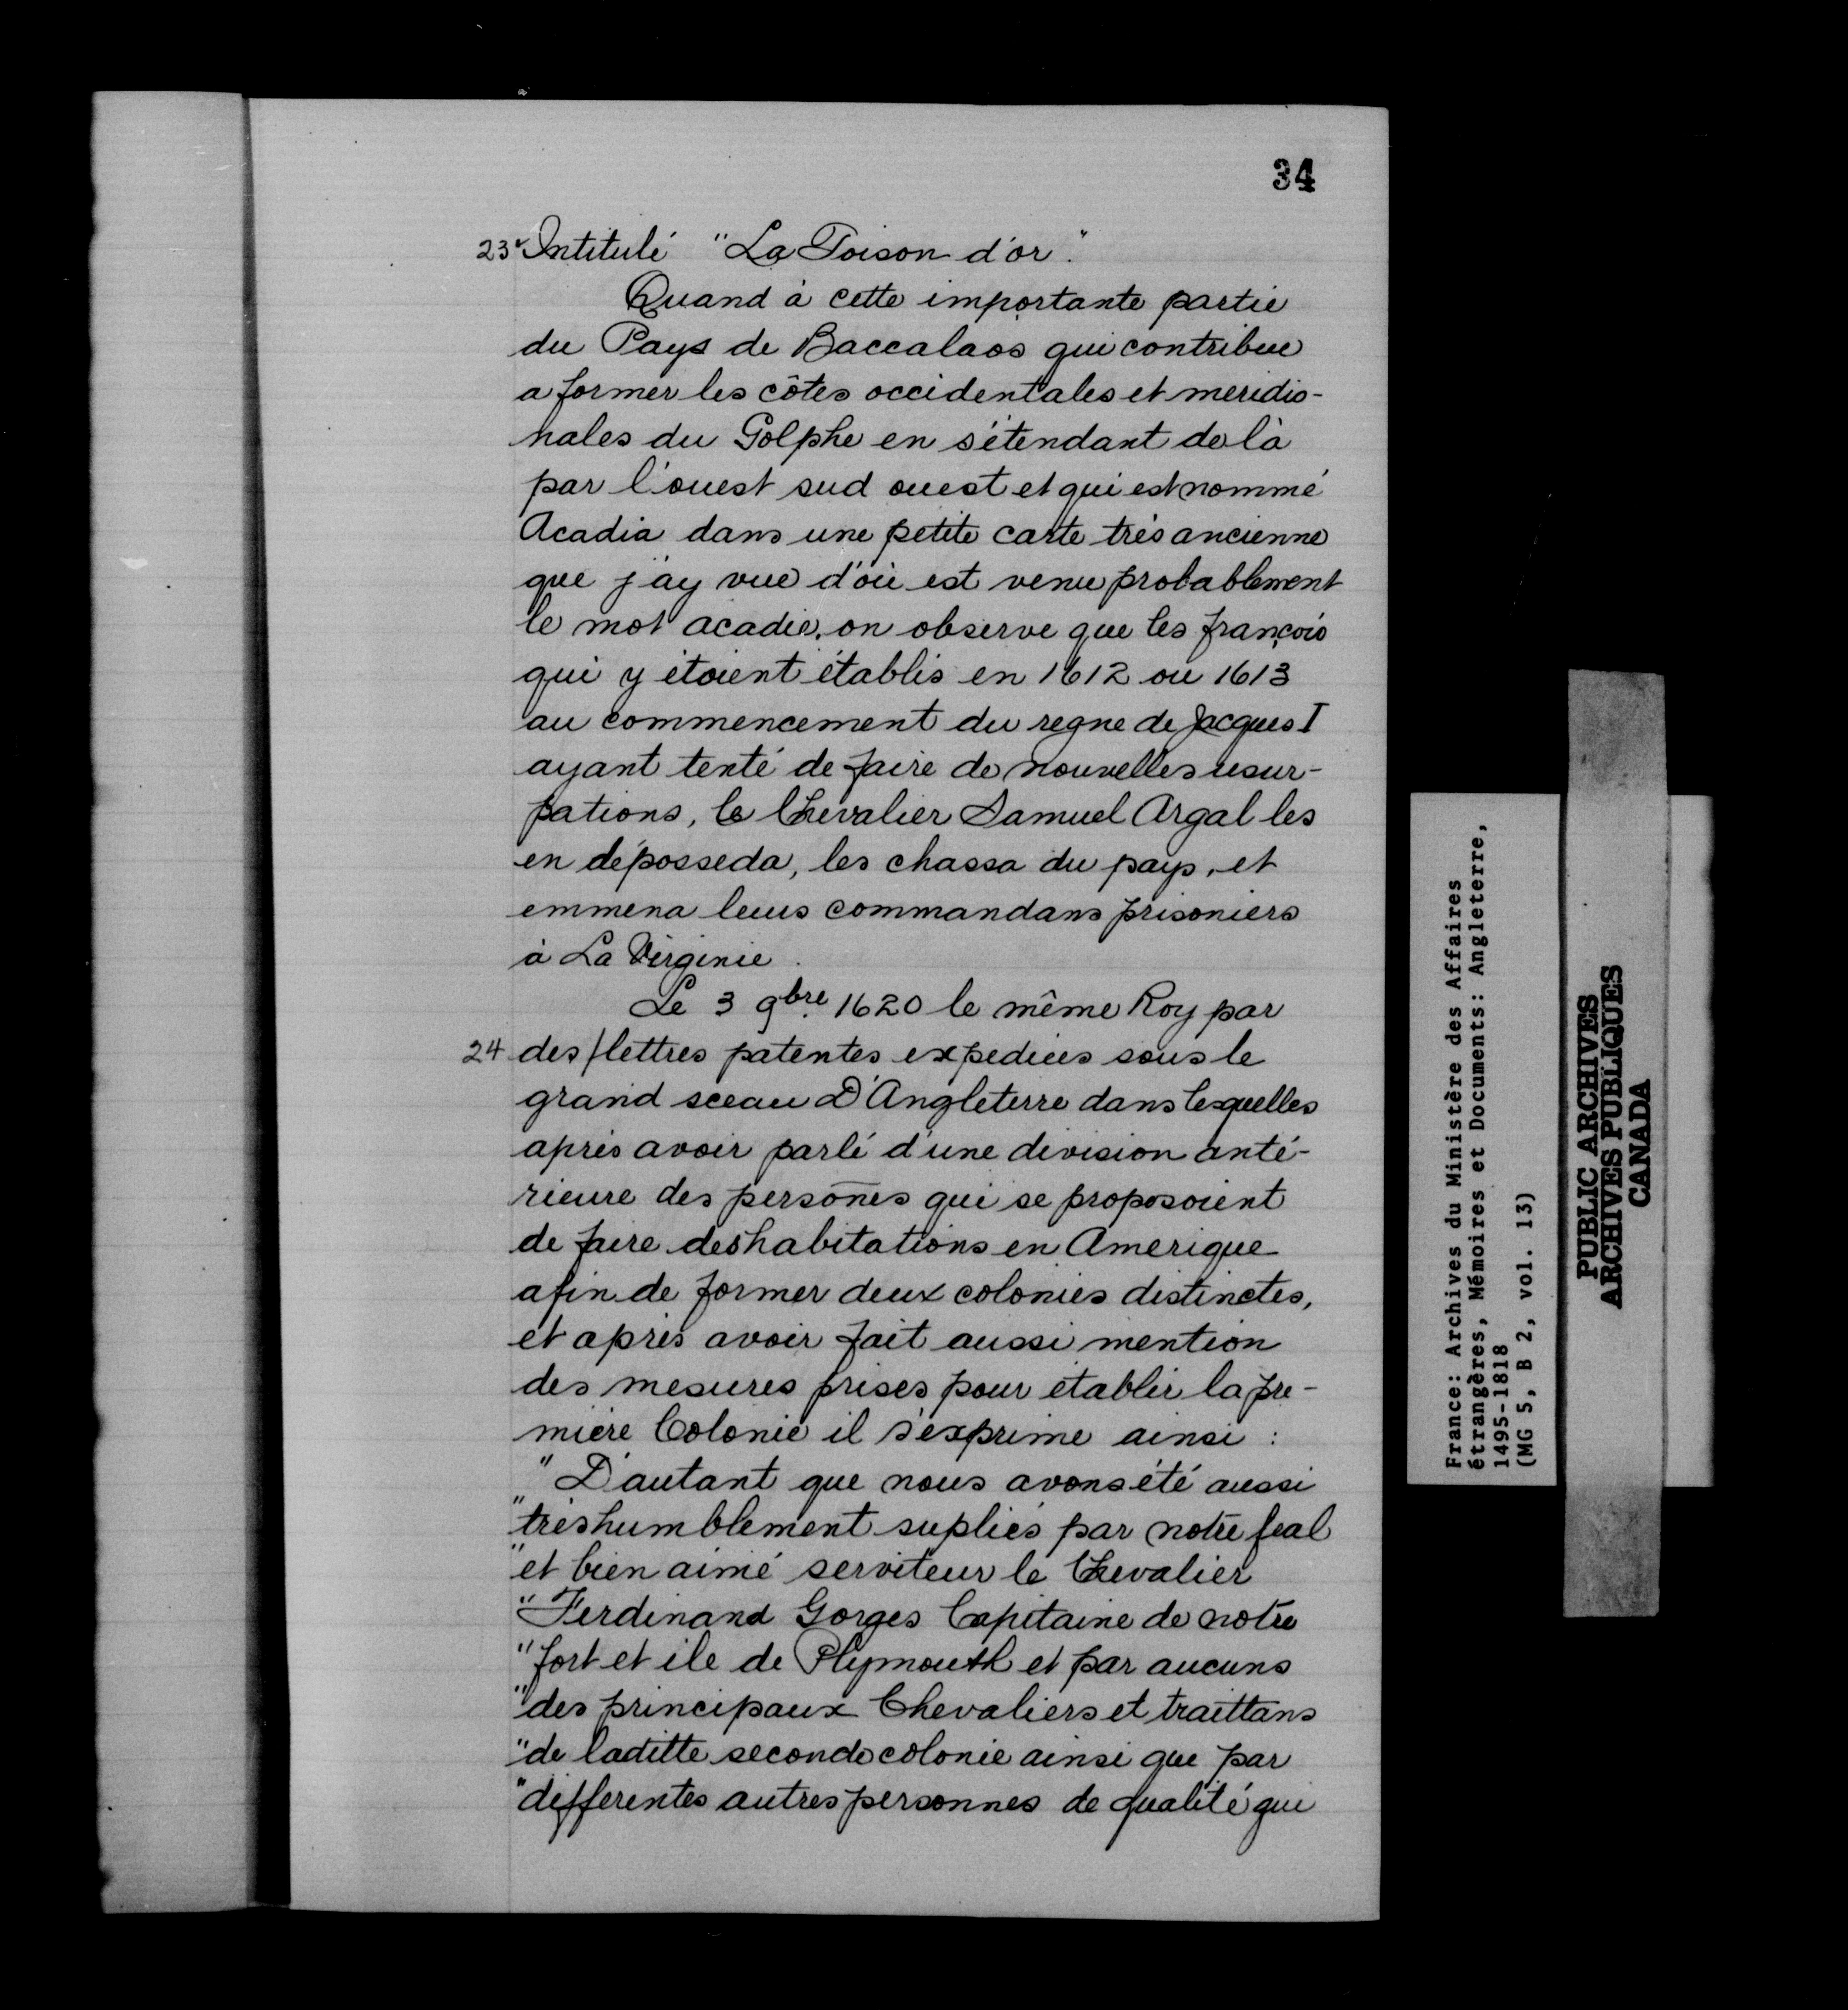 34
23v Intitulé "La Toison d'or."
Quand à cette importante partie
du Pays de Baccalaos qui contribue
a former les côtes occidentales et meridio-
nales du Golphe en s'étendant de là
par l'ouest sud ouest et qui est nommé
Acadia dans une petite carte très ancienne
que j'ay vue d'où est venu probablement
le mot acadie, on observe que les françois
qui y étoient établis en 1612 ou 1613
au commencement du regne de Jacques I
ayant tenté de faire de nouvelles usur-
pations, le Chevalier Samuel Argal les
en déposseda, les chassa du pays, et
emmena leurs commandans prisoniers
à La Virginie.
Le 3 9bre. 1620 le même Roy par
24 des/lettres patentes expediées sous le
grand sceau D'Angleterre dans lesquelles
après avoir parlé d'une division anté-
rieure des persones qui se proposoient
de faire des habitations en Amerique
afin de former deux colonies distinctes,
et après avoir fait aussi mention
des mesures prises pour établir la pre-
mière Colonie il s'exprime ainsi :
"D'autant que nous avons été aussi
"très humblement supliés par notre feal
"et bien aimé serviteur le Chevalier
"Ferdinand Gorges Capitaine de notre
"fort et ile de Plymouth et par aucuns
"des principaux Chevaliers et traittans
"de laditte seconde colonie ainsi que par
"differentes autres personnes de qualité qui
France: Archives du Ministère des Affaires
étrangères, Mémoires et Documents: Angleterre,
1495-1818
(MG 5, B 2, vol. 13)
PUBLIC ARCHIVES
ARCHIVES PUBLIQUES
CANADA